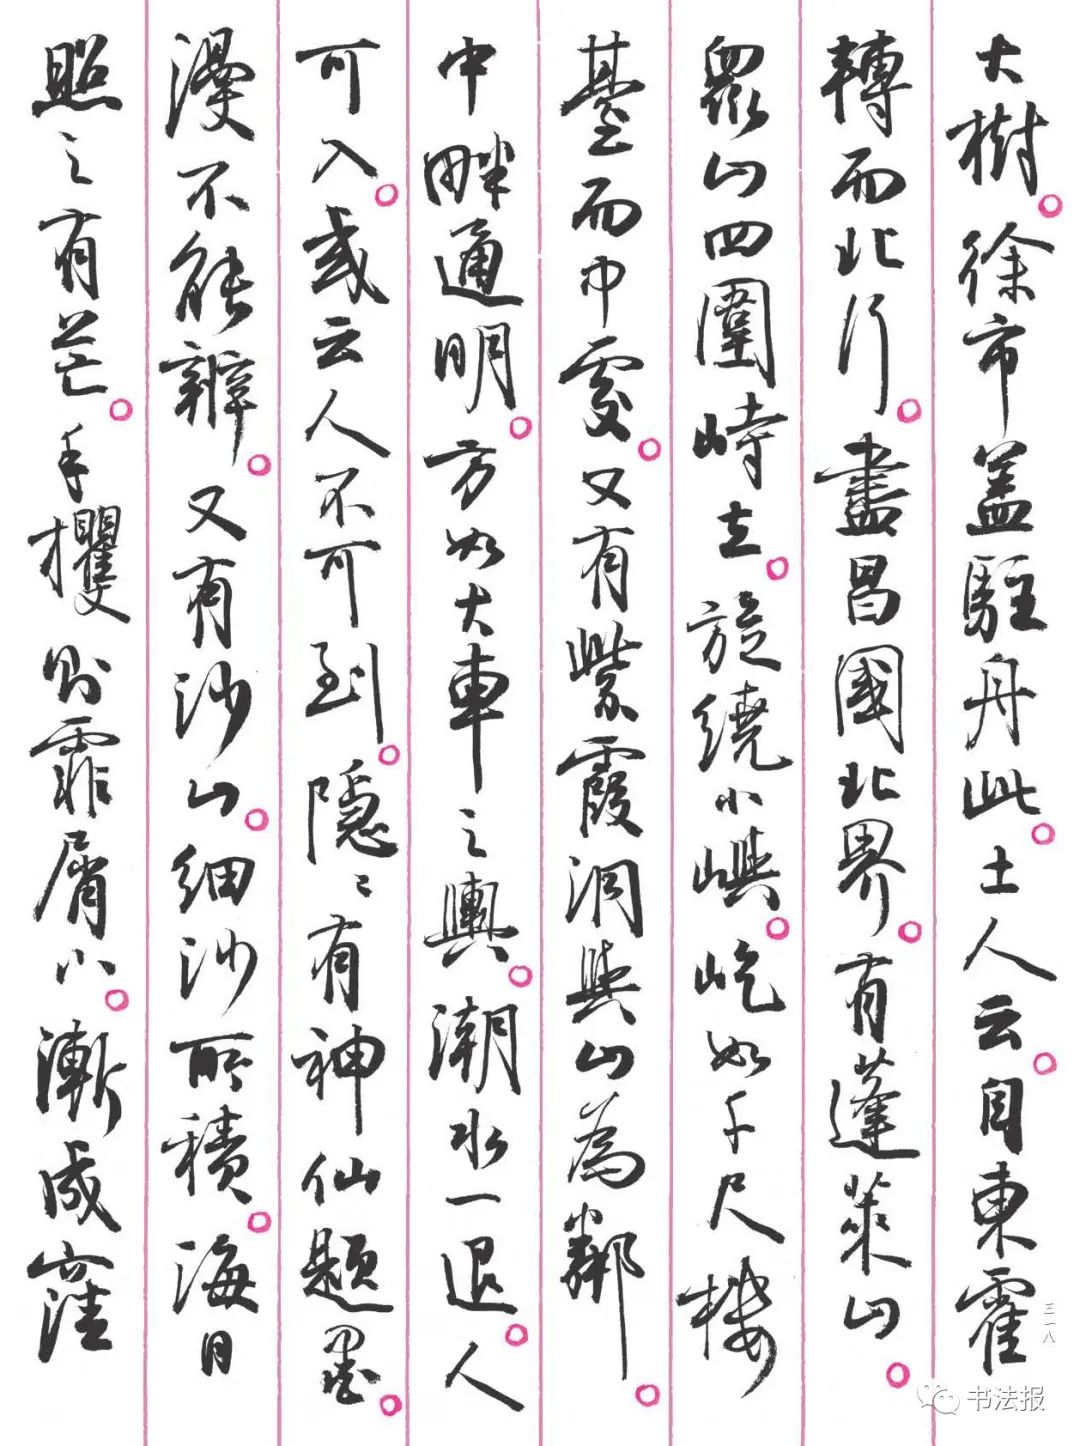 大樹。徐市盖駐舟此。土人云。自東霍
轉而北行。盡昌國北界。有蓬萊山。
眾山四圍峙立。旋繞小嶼。屹如千尺樓
臺而中處。又有紫霞洞與山為鄰。
中畔通明。方如大車之輿。潮水一退。人
可入。或云人不可到。隱〻有神仙題墨。
漫不能辨。又有沙山。細沙所積。海日
照之有芒。手攫則霏屑小。漸成窪
三一八
书法报